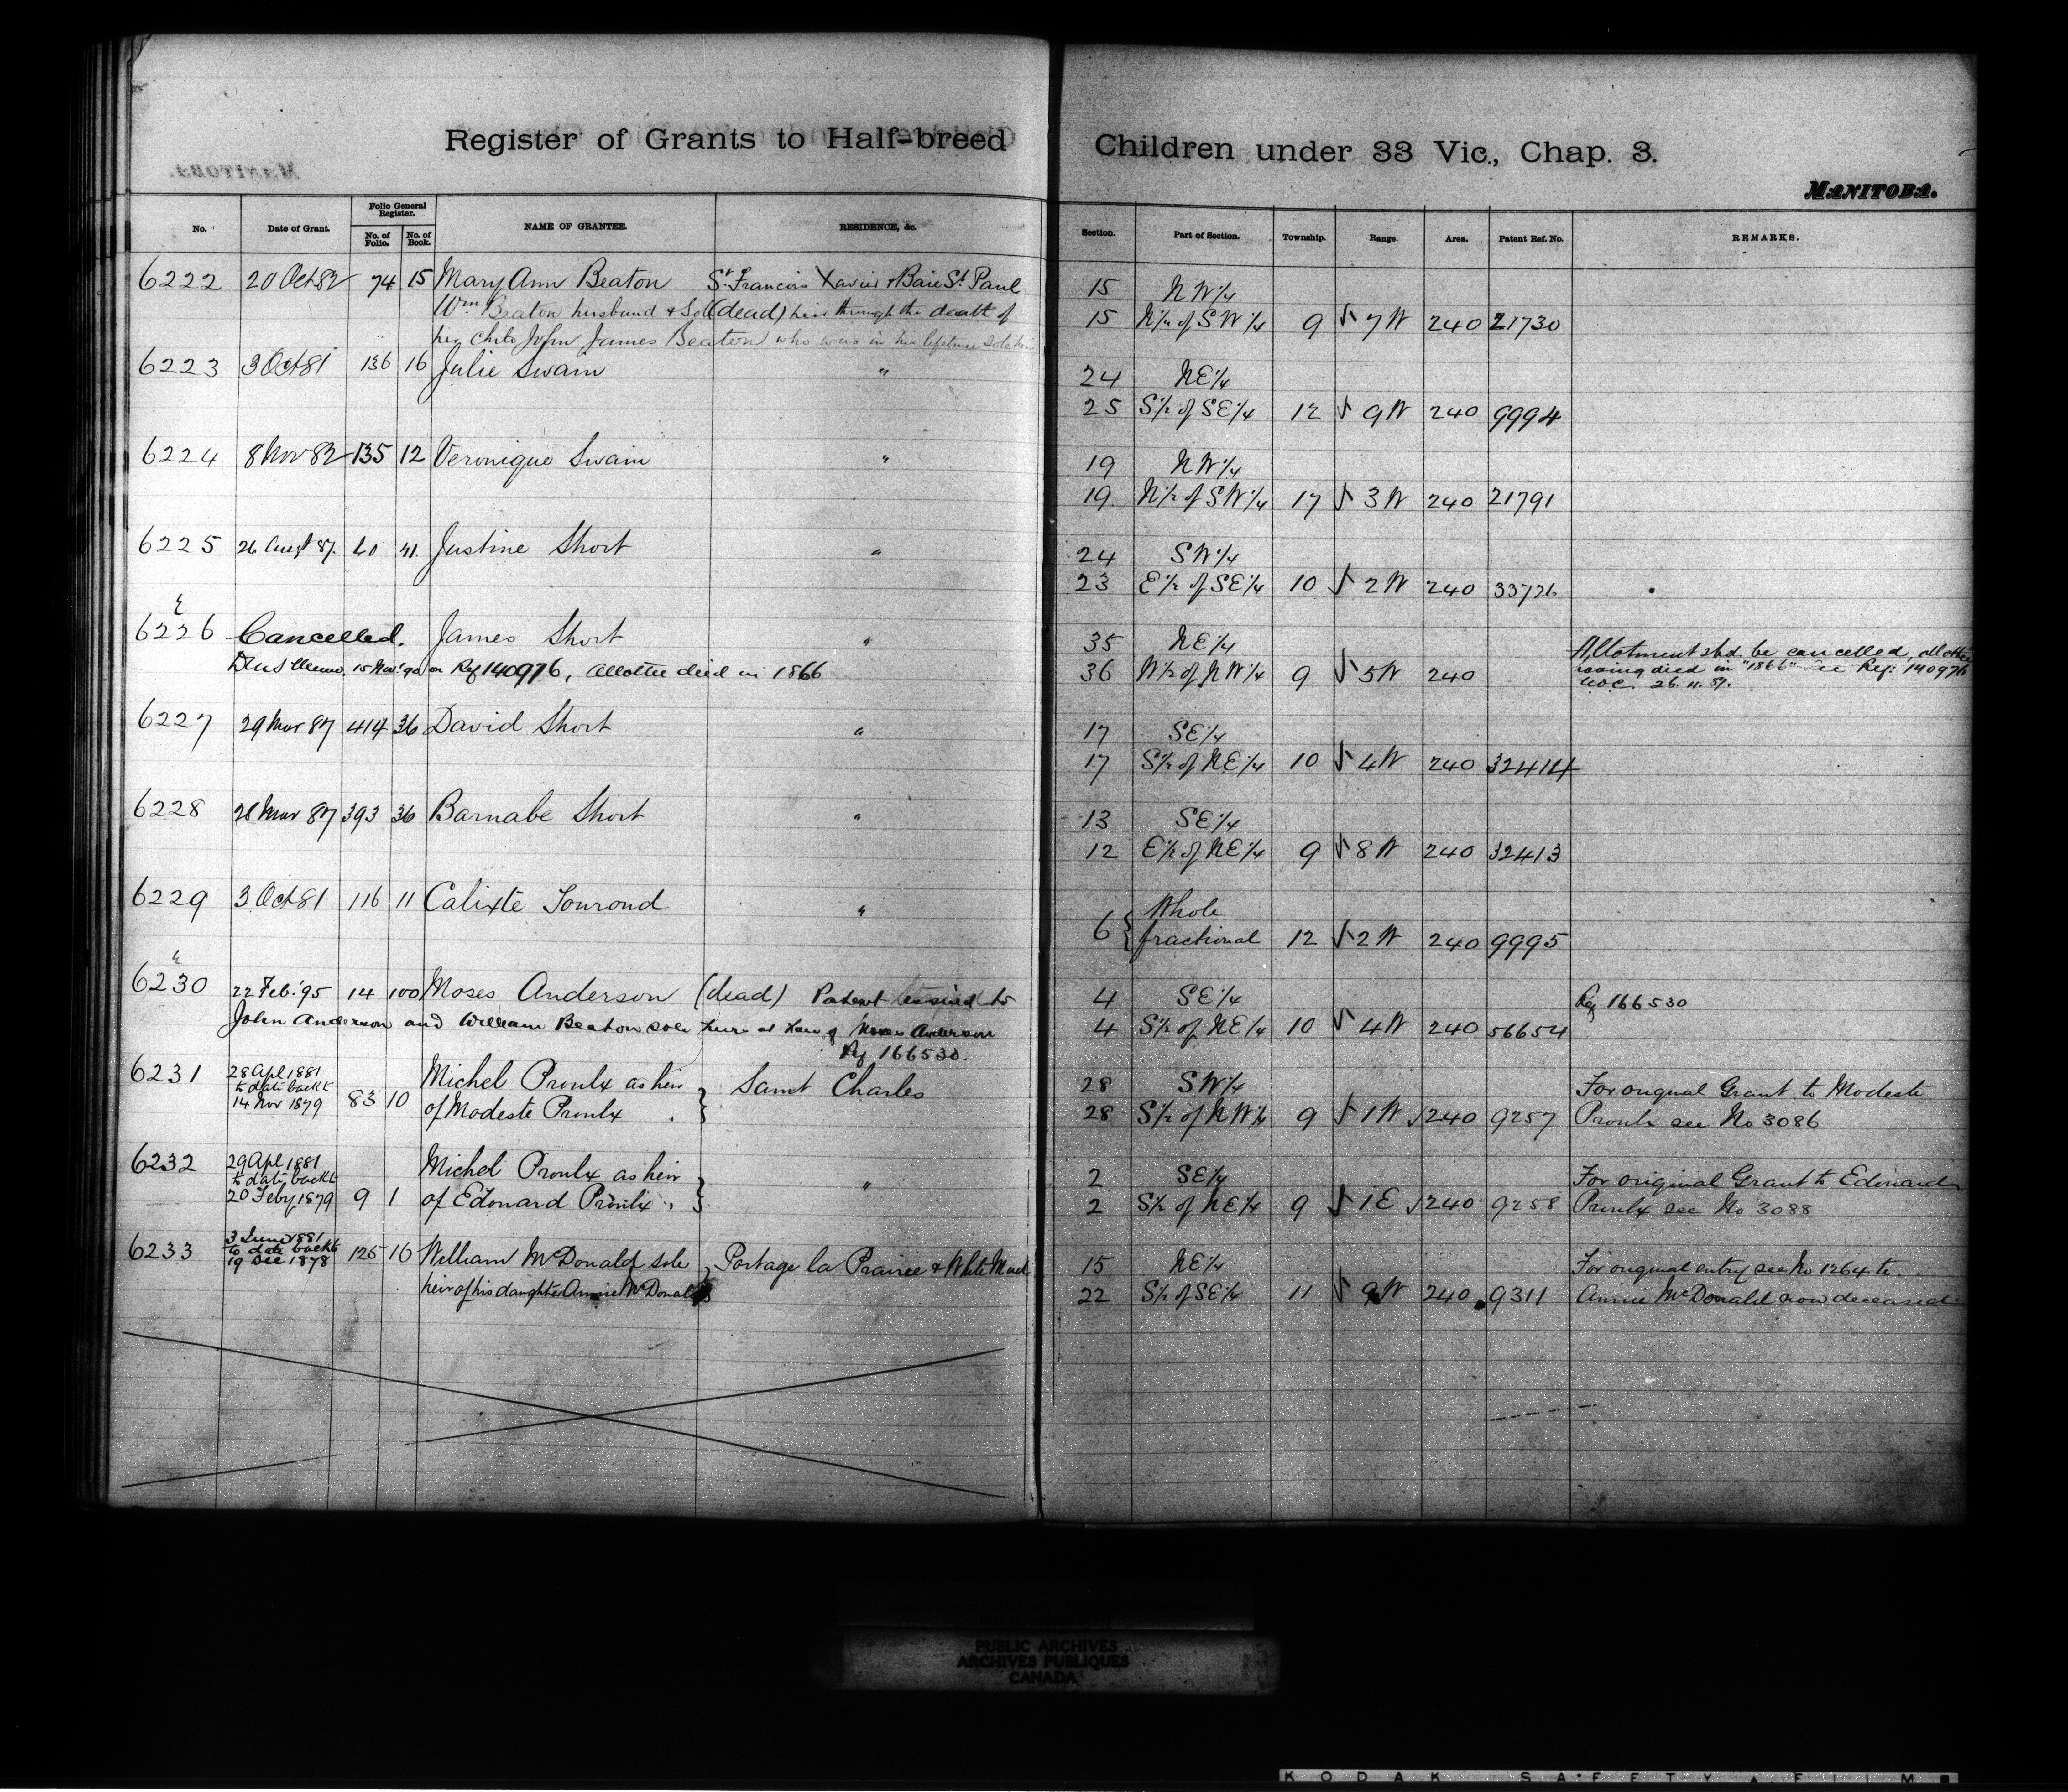 Register of Grants to Half-breed Children under 33 Vic., Chap. 3.
MANITOBA.
No. Date of Grant. Folio General Register. No. of Folio. No. of Book. NAME OF GRANTEE. RESIDENCE, &c. Section. Part of Section. Township. Range. Area. Patent Ref. No. REMARKS.
6222 20 Oct 82 74 15 Mary Ann Beaton St. Francois Xavier & Baie St. Paul 15 NW 1/4
Wm Beaton husband & Sole (dead) heir through the death of 15 N 1/2 of SW 1/4 9 7 W 240 21730
her child John James Beaton who was in his lifetime sole heir
6223 3 Oct 81 136 16 Julie Swain " 24 NE 1/4
25 S 1/2 of SE 1/4 12 9 W 240 9994
6224 8 Nov 82 135 12 Veronique Swain " 19 NW 1/4
19 N 1/2 of SW 1/4 17 3 W 240 21791
6225 26 Augt 87. 40 41. Justine Short " 24 SW 1/4
23 E 1/2 of SE 1/4 10 2 W 240 33726
6226 Cancelled. James Short " 35 NE 1/4 Allotment shd. be cancelled, allottee
15 Mar '90 on Ref 140976, Allottee died in 1866 36 W 1/2 of NW 1/4 9 5 W 240 having died in "1866" See Ref: 140976
26. 11. 87.
6227 29 Mar 87 414 36 David Short " 17 SE 1/4
17 S 1/2 of NE 1/4 10 4 W 240 32414
6228 28 Mar 87 393 36 Barnabe Short " 13 SE 1/4
12 E 1/2 of NE 1/4 9 8 W 240 32413
6229 3 Oct 81 116 11 Calixte Tourond " 6 { Whole
fractional 12 2 W 240 9995
6230 22 Feb. '95 14 100 Moses Anderson (dead) Patent issued to 4 SE 1/4 Ref 166530
John Anderson and William Beaton sole heirs at law of Moses Anderson 4 S 1/2 of NE 1/4 10 4 W 240 56654
Ref 166530.
6231 28 Apl 1881 Michel Proulx as heir } Saint Charles 28 SW 1/4 For original Grant to Modeste
to date back to
14 Nov 1879 83 10 of Modeste Proulx 28 S 1/2 of NW 1/4 9 1 W 240 9257 Proulx see No 3086
6232 29 Apl 1881 Michel Proulx as heir } " 2 SE 1/4 For original Grant to Edouard
to date back to
20 Feby 1879 9 1 of Edouard Proulx 2 S 1/2 of NE 1/4 9 1 E 240 9258 Proulx see No 3088
6233 3 June 1881
to date back to 125 10 William McDonald sole } Portage la Prairie & White Mud 15 NE 1/4 For original entry see No 1264 to
19 Dec 1878
heir of his daughter Annie McDonald 22 S 1/2 of SE 1/4 11 9 W 240 9311 Annie McDonald now deceased
PUBLIC ARCHIVES
ARCHIVES PUBLIQUES
CANADA
KODAK SAFETY FILM